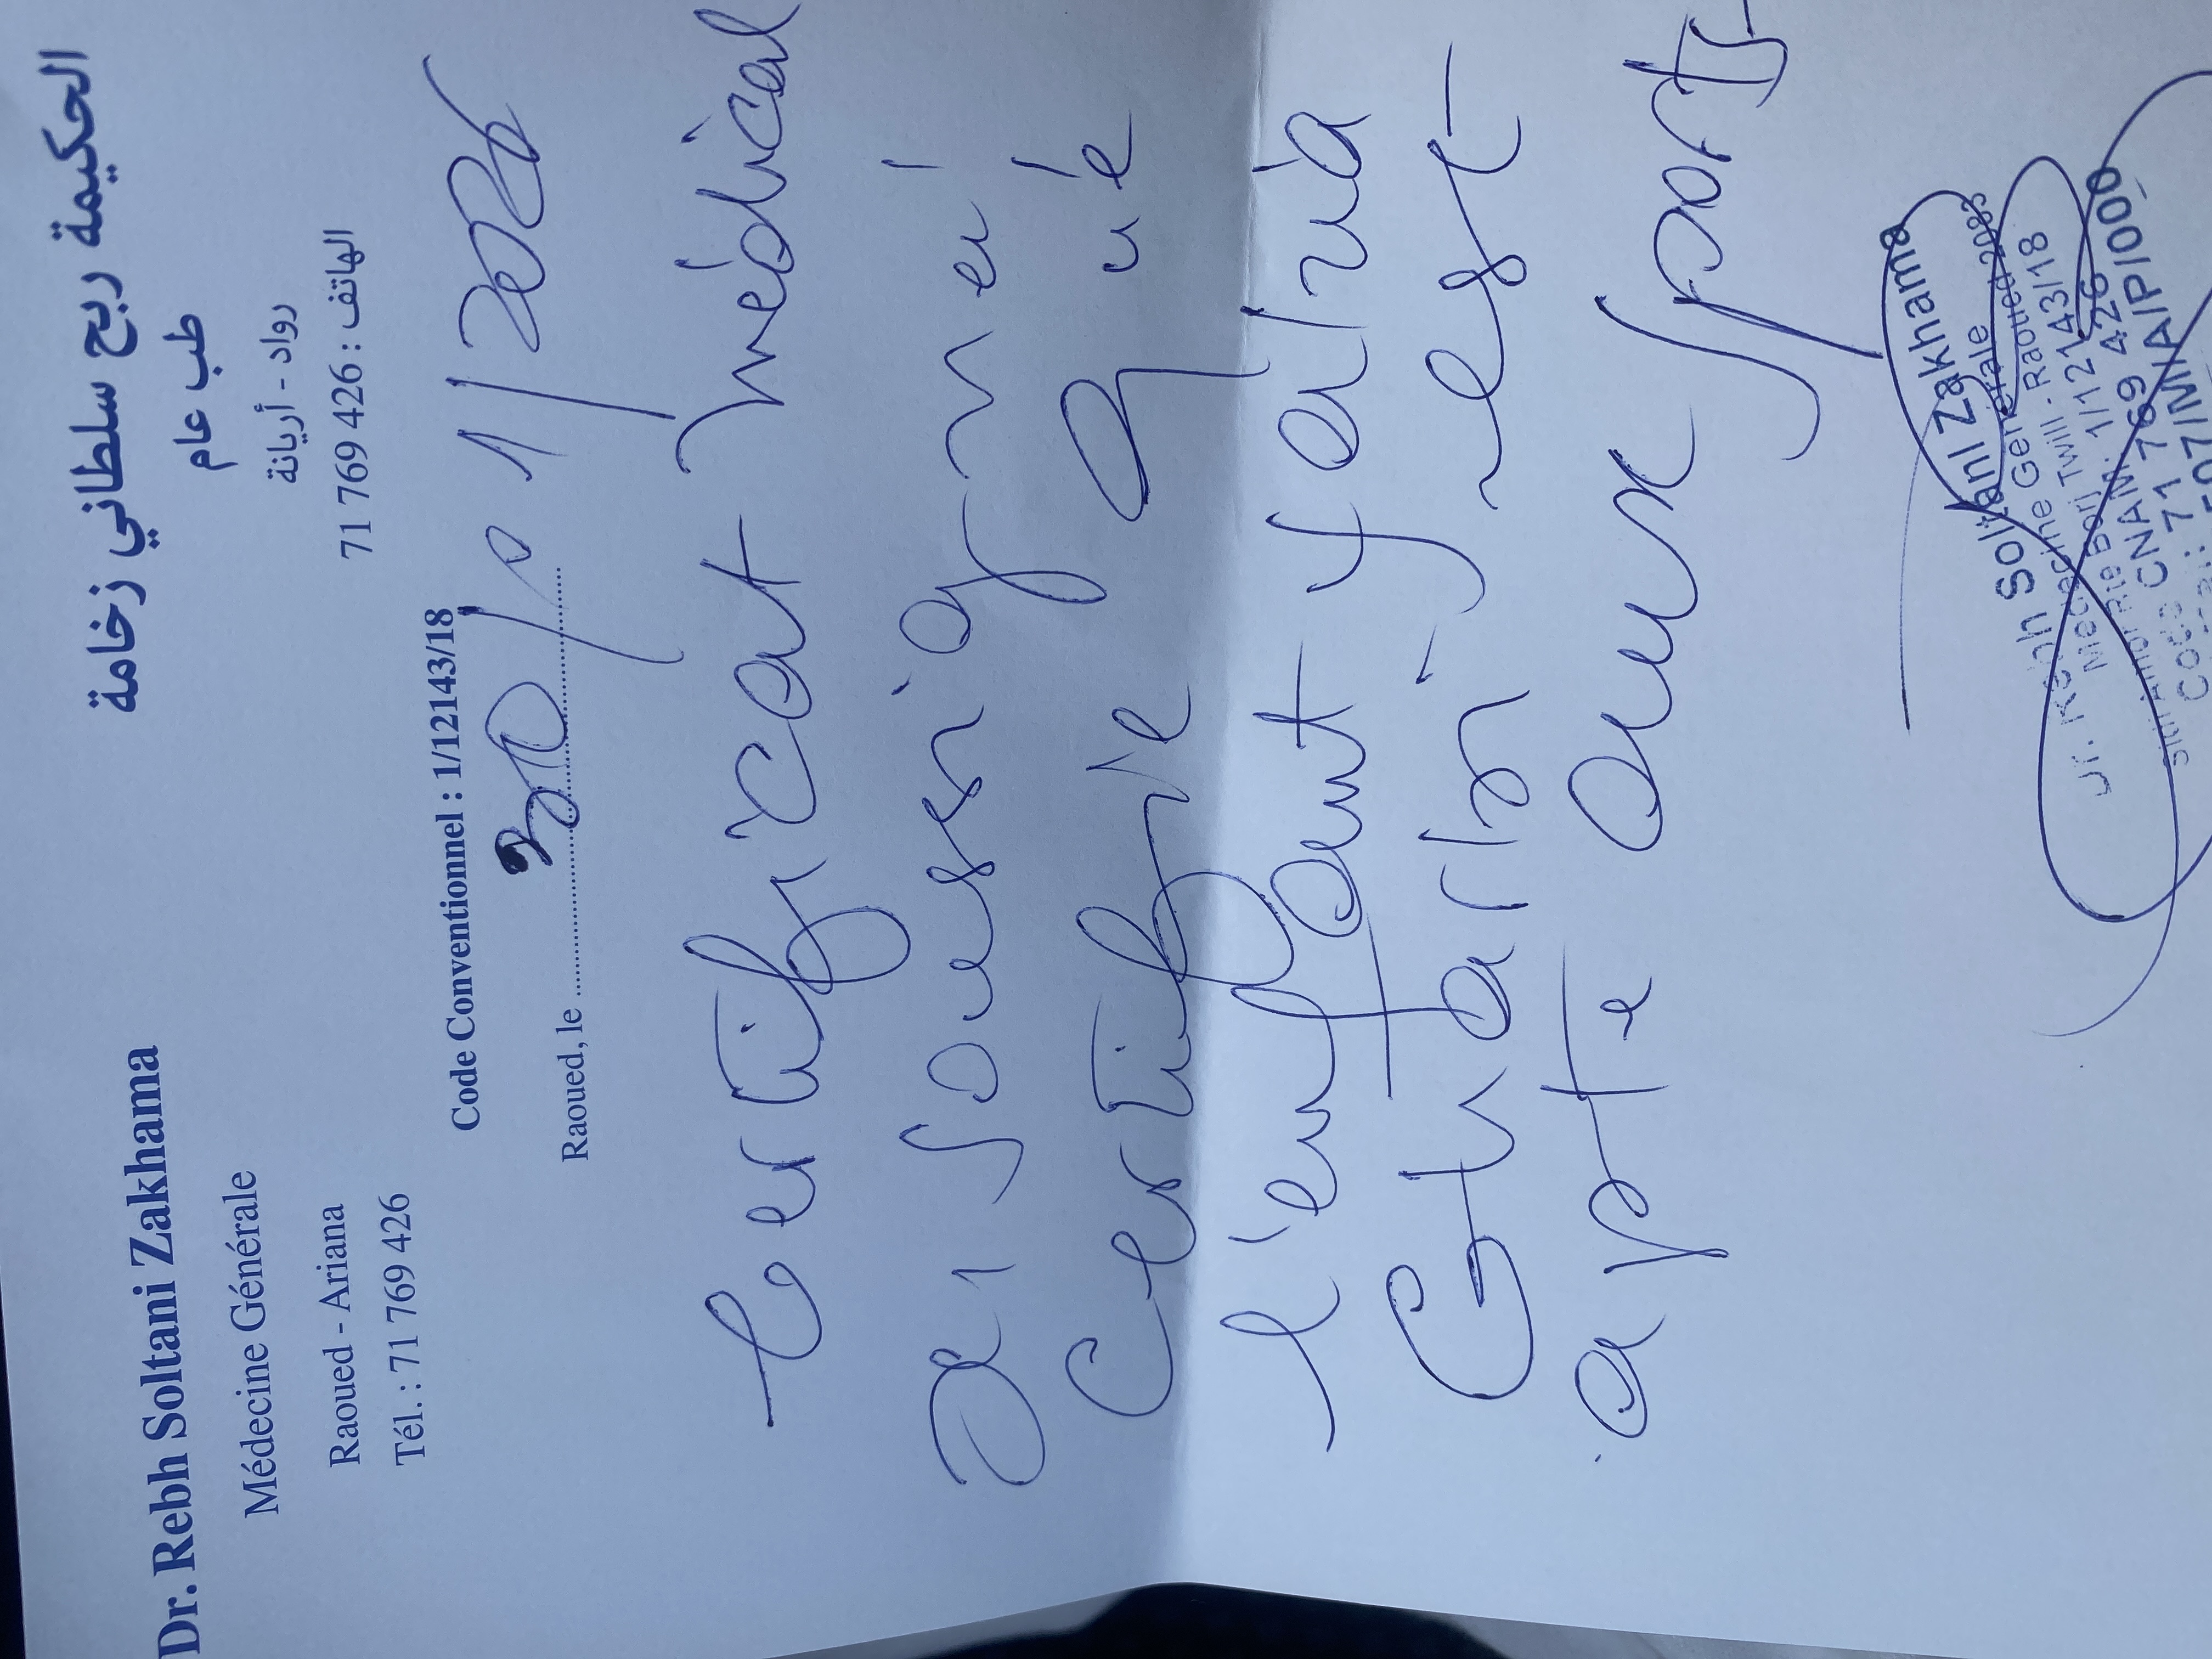 Dr. Rebh Soltani Zakhama
Médecine Générale
Raoued - Ariana
Tél. : 71 769 426
الحكيمة ربح سلطاني زخامة
طب عام
رواد - أريانة
الهاتف : 426 769 71
Code Conventionnel : 1/12143/18
Raoued, le 30/01/2026
Certificat médical
Je soussigné
certifie que
l'enfant Yahia
Gharbi est
apte aux sports
Dr. Rebh Soltani Zakhama
Médecine Générale
Borj Twill - Raoued 2083
Code CNAM: 1/12143/18
71 769 426